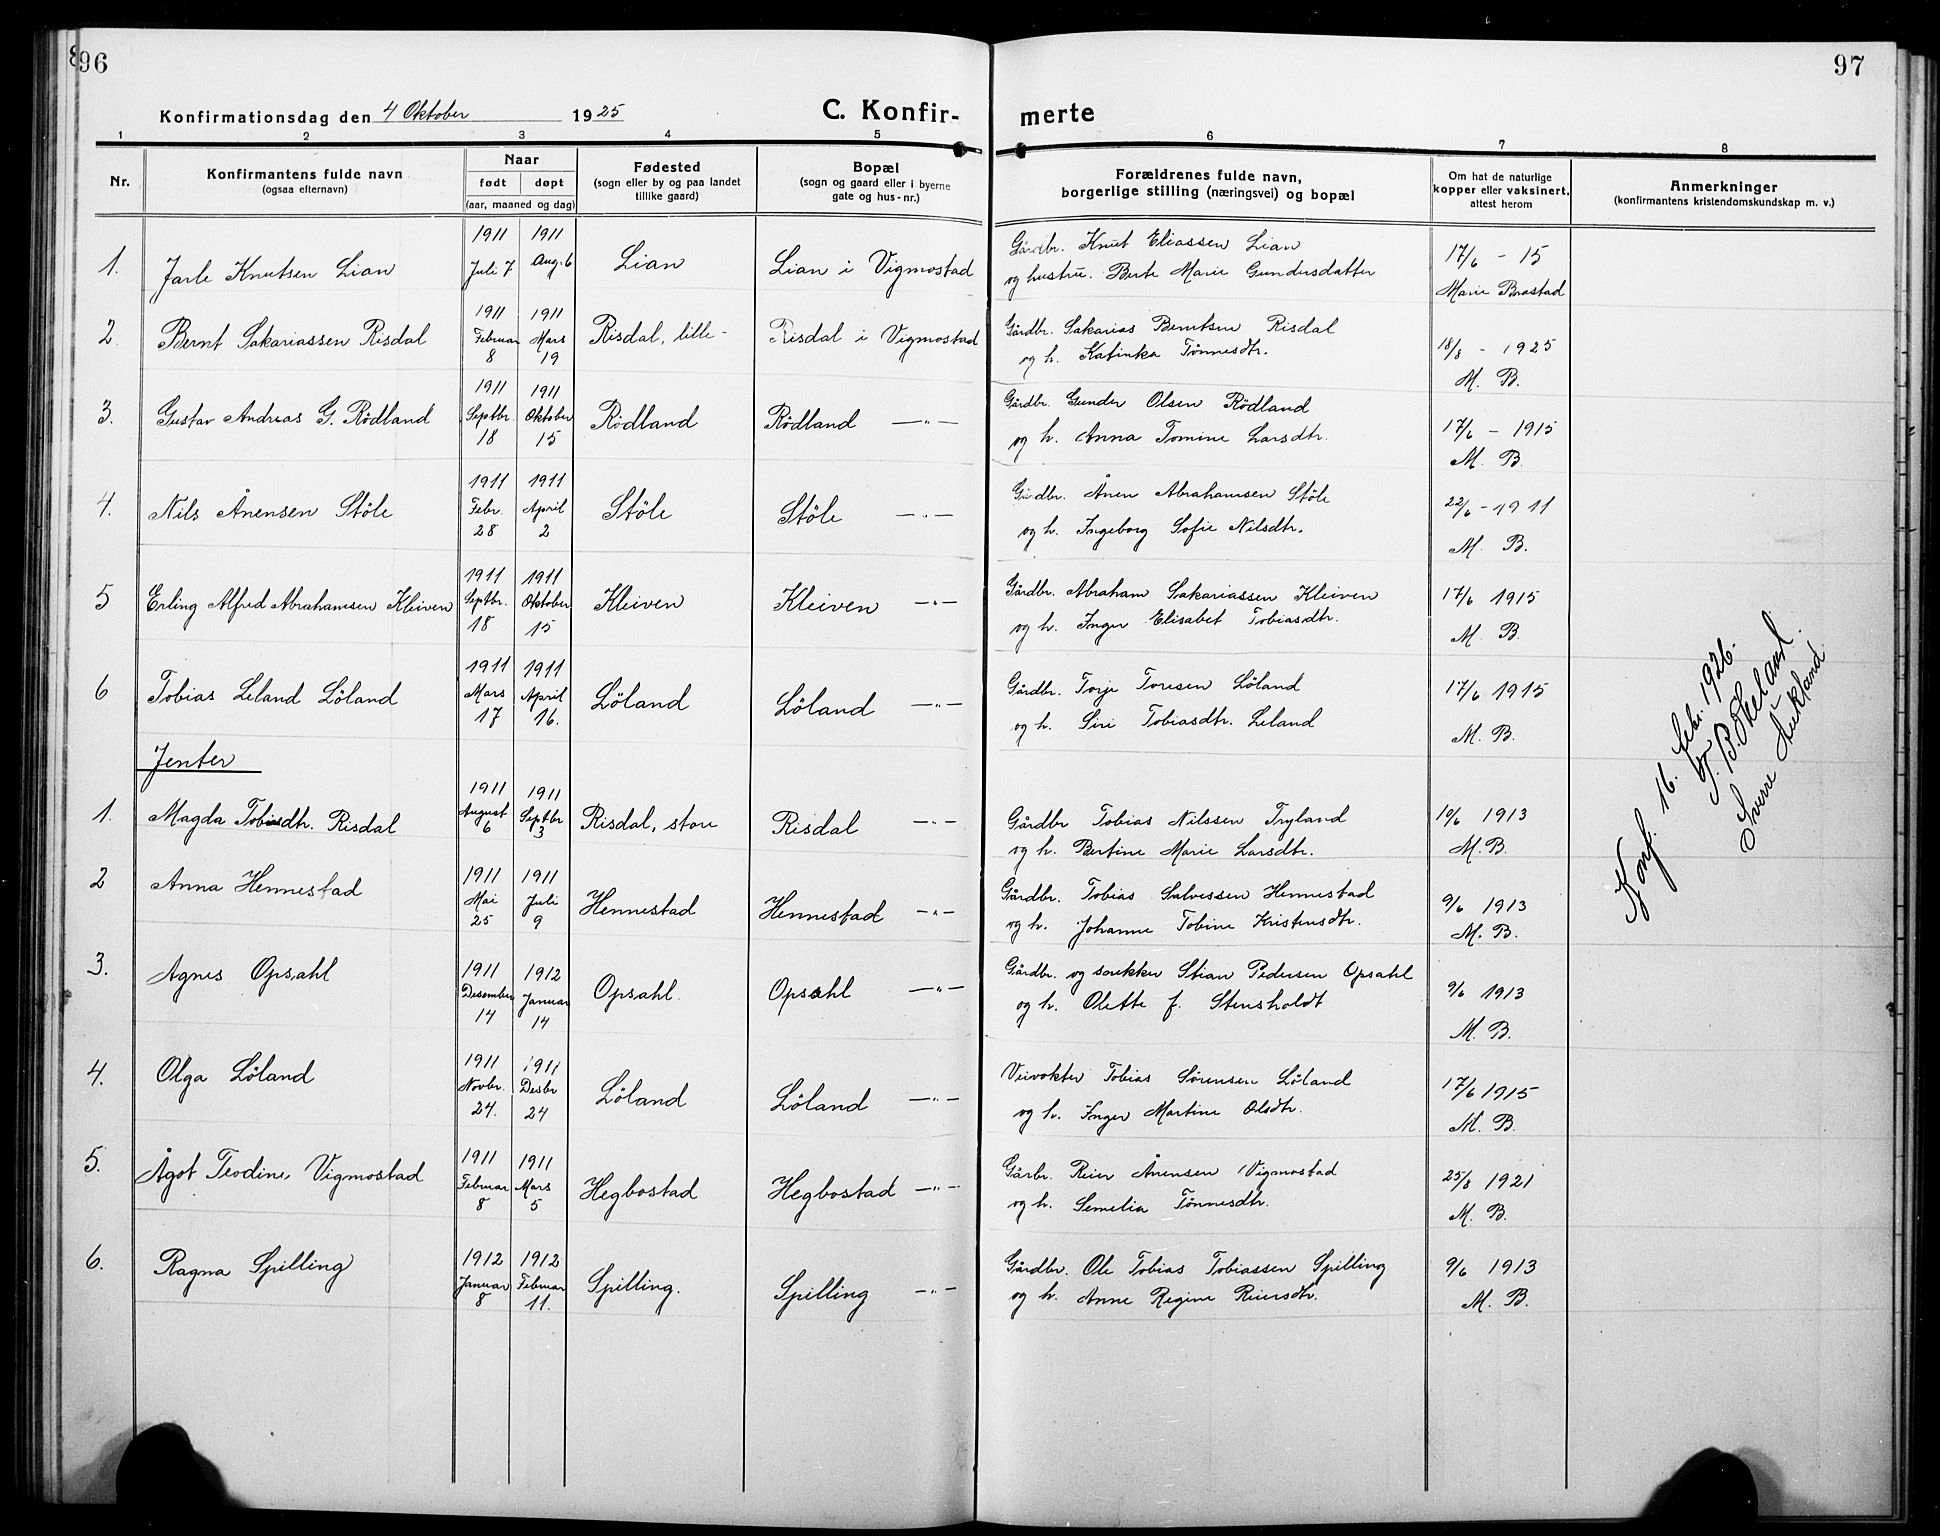 96
97
Konfirmationsdag den 4 Oktober 1925
C. Konfir-
merte
1 2 3 4 5 6 7 8
Nr.
Konfirmantens fulde navn
(ogsaa efternavn)
Naar
født døpt
(aar, maaned og dag)
Fødested
(sogn eller by og paa landet
tillike gaard)
Bopæl
(sogn og gaard eller i byerne
gate og hus-nr.)
Forældrenes fulde navn,
borgerlige stilling (næringsvei) og bopæl
Om hat de naturlige
kopper eller vaksinert,
attest herom
Anmerkninger
(konfirmantens kristendomskundskap m. v.)
1. Jarle Knutsen Lian 1911 Juli 7 1911 Aug. 6 Lian Lian i Vigmostad Gårdbr. Knut Eliassen Lian 17/6 - 15
og hustru. Berte Marie Gundersdatter Marie Brastad
2. Bernt Sakariassen Risdal 1911 Februar 8 1911 Mars 19 Risdal, lille - Risdal i Vigmostad Gårdbr. Sakarias Berntsen Risdal 18/8 - 1925
og h. Katinka Tønnesdtr. M. B.
3. Gustav Andreas G. Rödland 1911 Septbr. 18 1911 Oktober 15 Rödland Rödland —„— Gårdbr. Gunder Olsen Rödland 17/6 - 1915
og h. Anna Tomine Larsdtr. M. B.
4. Nils Ånensen Stöle 1911 Febr. 28 1911 April 2 Stöle Stöle —„— Gårdbr. Ånen Abrahamsen Stöle 22/6 - 1911
og h. Ingeborg Sofie Nilsdtr. M. B.
5 Erling Alfred Abrahamsen Kleiven 1911 Septbr. 18 1911 Oktober 15 Kleiven Kleiven —„— Gårdbr. Abraham Sakariassen Kleiven 17/6 1915
og h. Inger Elisabet Tobiasdtr. M. B.
6 Tobias Leland Löland 1911 Mars 17 1911 April 16. Löland Löland —„— Gårdbr. Torje Toresen Löland 17/6 1915
og h. Siri Tobiasdtr. Leland M. B.
Jenter
1. Magda Tobiasdtr. Risdal 1911 August 6 1911 Septbr 3 Risdal, store Risdal —„— Gårdbr Tobias Nilssen Tryland 10/6 1913
og h. Bertine Marie Larsdtr. M. B.
2 Anna Hennestad 1911 Mai 25 1911 Juli 9 Hennestad Hennestad —„— Gårdbr. Tobias Salvessen Hennestad 9/6 1913
og h. Johanne Tobine Kristensdtr. M. B.
3. Agnes Opsahl 1911 Desember 14 1912 Januar 14 Opsahl. Opsahl —„— Gårdbr. og snekker Stian Pedersen Opsahl 9/6 1913
og h. Olette f. Stensholdt M. B.
4. Olga Löland 1911 Novbr. 24. 1911 Desbr 24 Löland Löland —„— Veivokter Tobias Sørensen Löland 17/6 1915
og h. Inger Martine Olsdtr. M. B.
5. Ågot Teodine Vigmostad 1911 Februar 8 1911 Mars 5 Hegbostad Hegbostad —„— Gårbr. Reier Ånensen Vigmostad 25/8 1921
og h. Semelia Tönnesdtr. M. B.
6. Ragna Spilling 1912 Januar 8 1912 Februar 11. Spilling. Spilling —„— Gårdbr. Ole Tobias Tobiassen Spilling 9/6 1913
og h. Anne Regine Reiersdtr. M. B.
Konf. 16. febr. 1926.
Sverre Aukland